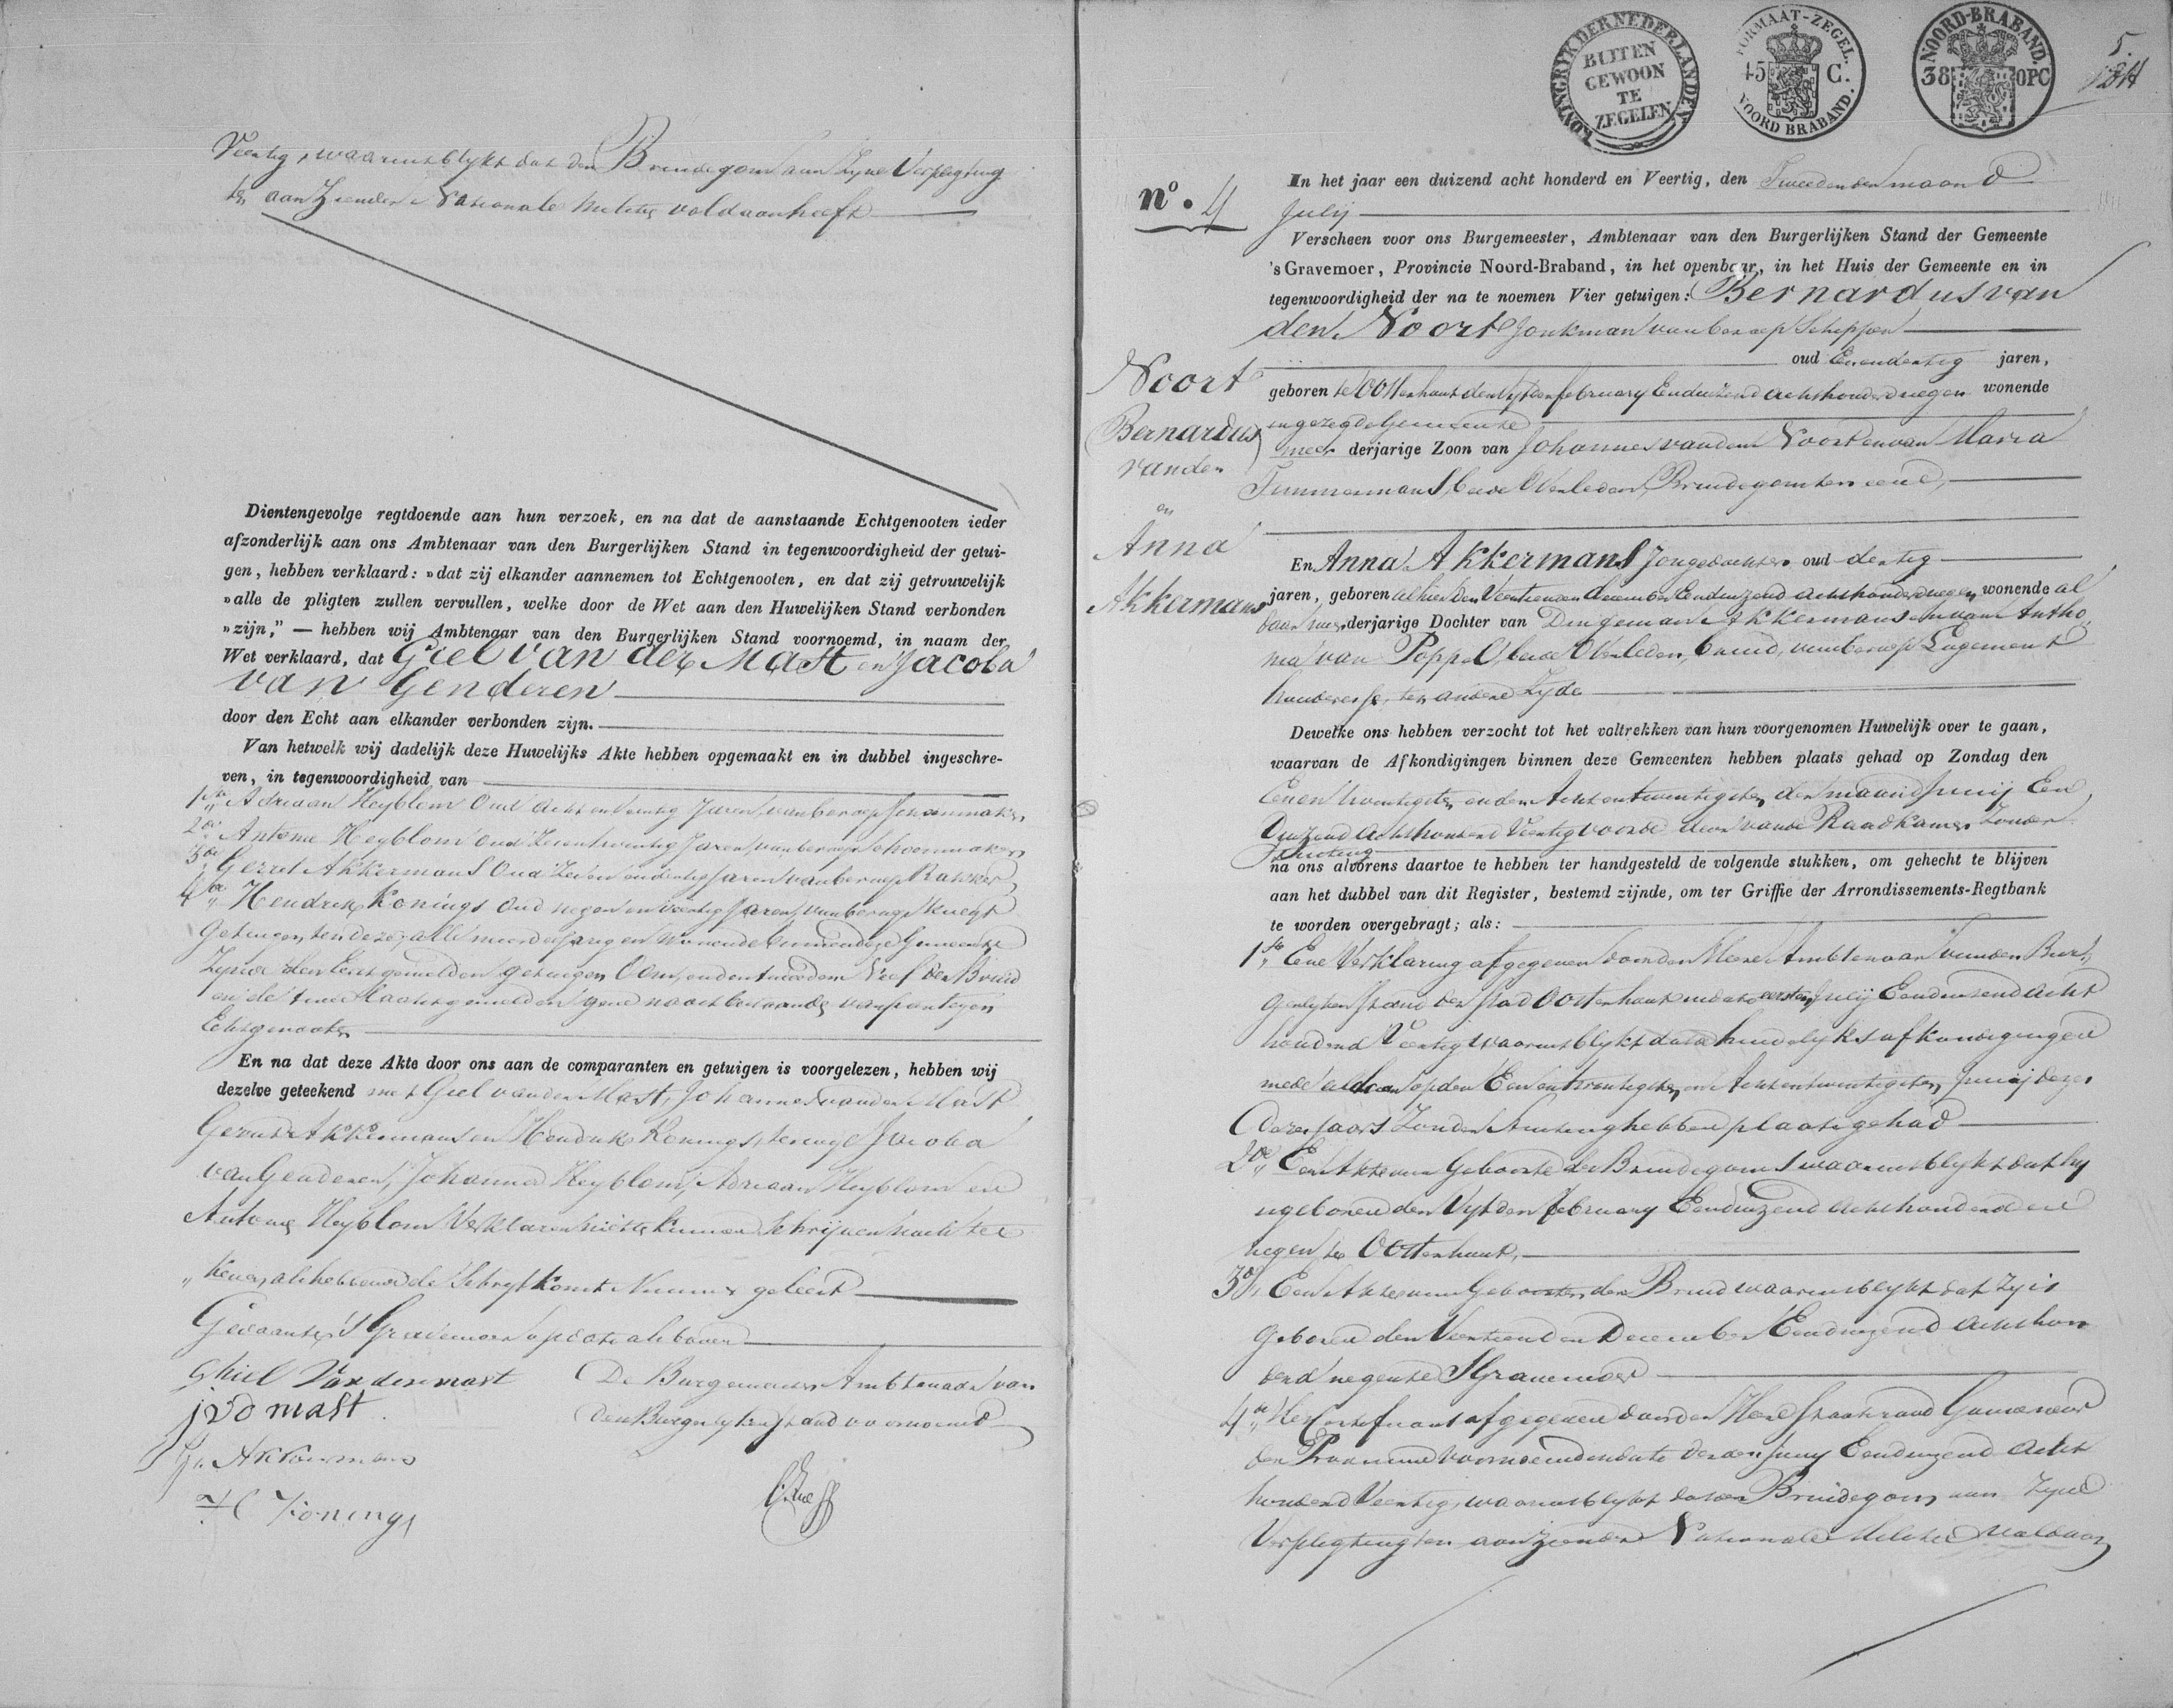 Veertig, waaruit blykt dat den Bruidegom aan Zyne Verpligting
ten aanziender Nationale Militie voldaan heeft
Dientengevolge regtdoende aan hun verzoek, en na dat de aanstaande Echtgenooten ieder
afzonderlijk aan ons Ambtenaar van den Burgerlijken Stand in tegenwoordigheid der getui-
gen, hebben verklaard: »dat zij elkander aannemen tot Echtgenooten, en dat zij getrouwelijk
»alle de pligten zullen vervullen, welke door de Wet aan den Huwelijken Stand verbonden
»zijn,” — hebben wij Ambtenaar van den Burgerlijken Stand voornoemd, in naam der
Wet verklaard, dat Giel van der Mast en Jacoba
van Genderen
door den Echt aan elkander verbonden zijn.
Van hetwelk wij dadelijk deze Huwelijks Akte hebben opgemaakt en in dubbel ingeschre-
ven, in tegenwoordigheid van
1ste Adriaan Heyblom Oud acht en veertig Jaren, van beroep Schoenmaker,
2de Antonie Heyblom oud Zevenentwintig Jaren, van beroep Schoenmaker
3de Gerrit Akkermans Oud Zeven en dertig Jaren van beroep Bakker
4de Hendrik Konings Oud negen en veertig Jaren, van beroep Knegt
Getuigen ten deze, alle meerderjarig en wonende binnen deze Gemeente
Zynde den Eerstgemelden getuigen Oom, en den tweeden Neef der Bruid
en de twee laatstgemelden gene naastbestaande van partyen
Echtgenooten
En na dat deze Akte door ons aan de comparanten en getuigen is voorgelezen, hebben wij
dezelve geteekend met Giel van der Mast, Johannes van der Mast
Gerrit Akkermans en Hendrik Konings, terwyl Jacoba
van Genderen, Johanna Heyblom, Adriaan Heyblom en
Antonie Heyblom Verklaren niet te kunnen schrijven noch tee
kenen, als hebbende de Schryfkonst Nimmer geleerd
Gedaan te 'S Gravemoer op dato als boven
Ghiel Van der mast
De Burgemeester Ambtenaar van
j v d mast
den Burgerlyken Stand voornoemd
Gr Akkermans
H Konings
KONINGRYK DER NEDERLANDEN
BUITEN
GEWOON
TE
ZEGELEN
FORMAAT-ZEGEL.
45 C.
NOORD BRABAND.
NOORD-BRABAND.
38 OPC
5.
nº. 4
In het jaar een duizend acht honderd en Veertig, den Tweeden der maand
Julij
Verscheen voor ons Burgemeester, Ambtenaar van den Burgerlijken Stand der Gemeente
's Gravemoer, Provincie Noord-Braband, in het openbaar, in het Huis der Gemeente en in
tegenwoordigheid der na te noemen Vier getuigen: Bernardus van
den Noort Jonkman van beroep Schipper
oud Eenendertig jaren,
Noort
geboren te Oosterhout den Vyfden february Eenduizend achthonderd negen wonende
in gezegde Gemeente
Bernardus
meer derjarige Zoon van Johannes van den Noort en van Maria
van den
Timmermans, beide Overleden, Bruidegom ter eene,
en
Anna
En Anna Akkermans Jongedochter oud dertig
Akkermans
jaren, geboren alhier den Veertienden december Eenduizend achthonderd negen wonende al
daar meerderjarige Dochter van Dingeman Akkermans en van Antho
nia van Poppel, beide Overleden, bruid, van beroep Logement
houderesse, ter andere Zyde
Dewelke ons hebben verzocht tot het voltrekken van hun voorgenomen Huwelijk over te gaan,
waarvan de Afkondigingen binnen deze Gemeenten hebben plaats gehad op Zondag den
Eenen twentigsten en den Achtentwentigsten der maand Junij Een
Duizend Achthonderd Veertig voor de deur van de Raadkamer Zonder
stuiting
na ons alvorens daartoe te hebben ter handgesteld de volgende stukken, om gehecht te blijven
aan het dubbel van dit Register, bestemd zijnde, om ter Griffie der Arrondissements-Regtbank
te worden overgebragt; als:
1ste Eene Verklaring afgegeven door den Heere Ambtenaar van den Bur
gerlyken Stand der Stad Oosterhout in dato eersten July Eenduizend acht
honderd Veertig waaruit blykt dat de huwelyks afkondigingen
mede aldaar op den Een en twentigsten en Achtentwentigsten Junij dezes
Jaars Zonder Stuiting hebben plaats gehad
2de Een Akte van Geboorte des Bruidegoms waaruit blykt dat hy
is geboren den Vyfden february Eenduizend achthonderd en
negen te Oosterhout,
3de Een Akte van Geboorte der Bruid waaruit blykt dat Zy is
Geboren den Veertienden December Eenduizend achthon
derd negen te S Gravemoer
4de Het Certificaat afgegeven door den Heere Staatsraad Gouverneur
der Provincie voornoemd in dato Junij Eenduizend acht
honderd Veertig, waaruit blykt dat den Bruidegom aan Zyne
Verpligting ten aanziender Nationale Militie voldaan